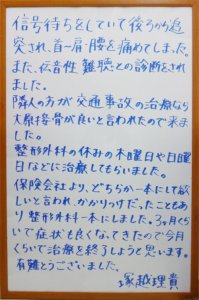 信号待ちをしていて後ろから追
突され、首・肩・腰を痛めてしまった。
また、伝音性難聴との診断をされ
ました。
隣人の方が交通事故の治療なら
大原接骨が良いと言われたので来ま
した。
整形外科の休みの木曜日や日曜
日などに治療してもらいました。
保険会社より、どちらか一本にして欲
しいと言われ、かかりつけだったこともあ
り整形外科一本にしました。3ヶ月くら
いで症状も良くなってきたので今月
くらいで治療を終了しようと思います。
有難とうございました。
塚越理貴